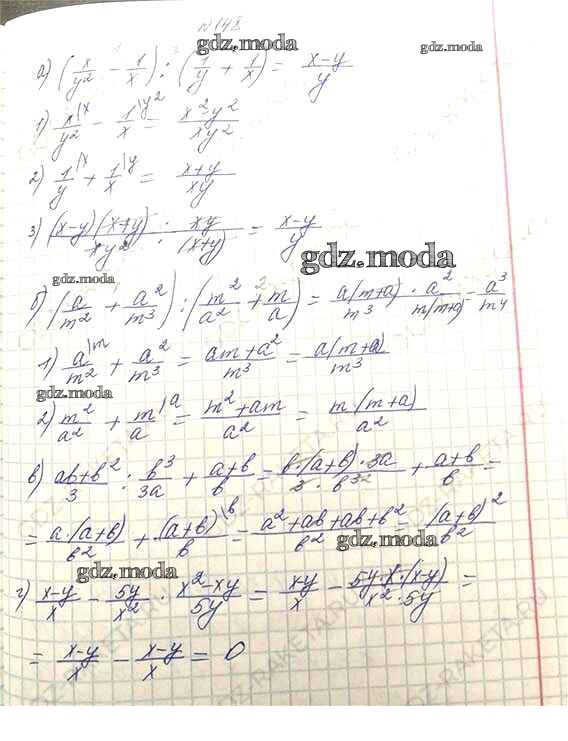 N 148
gdz.moda
gdz.moda
а) (x/y² - 1/x) : (1/y + 1/x) = (x-y)/y
1) x|x/y² - 1|y²/x = (x²-y²)/(xy²)
2) 1|x/y + 1|y/x = (x+y)/(xy)
3) (x-y)(x+y)/(xy²) : xy/(x+y) = (x-y)/y
gdz.moda
gdz.moda
б) (a/m² + a²/m³) : (m²/a² + m/a) = a(m+a)/m³ · a²/(m(m+a)) = a³/m⁴
1) a|m/m² + a²/m³ = (am+a²)/m³ = a(m+a)/m³
gdz.moda
2) m²/a² + m|a/a = (m²+am)/a² = m(m+a)/a²
в) (ab+b²)/3 : b³/3a + (a+b)/b = b·(a+b)·3a/(3·b³²) + (a+b)/b =
= a·(a+b)/b² + (a+b)|b/b = (a²+ab+ab+b²)/b² = (a+b)²/b²
gdz.moda
gdz.moda
г) (x-y)/x - 5y/x² · (x²-xy)/5y = (x-y)/x - 5y·x·(x-y)/(x²·5y) =
= (x-y)/x - (x-y)/x = 0
GDZ-RAKETA.RU